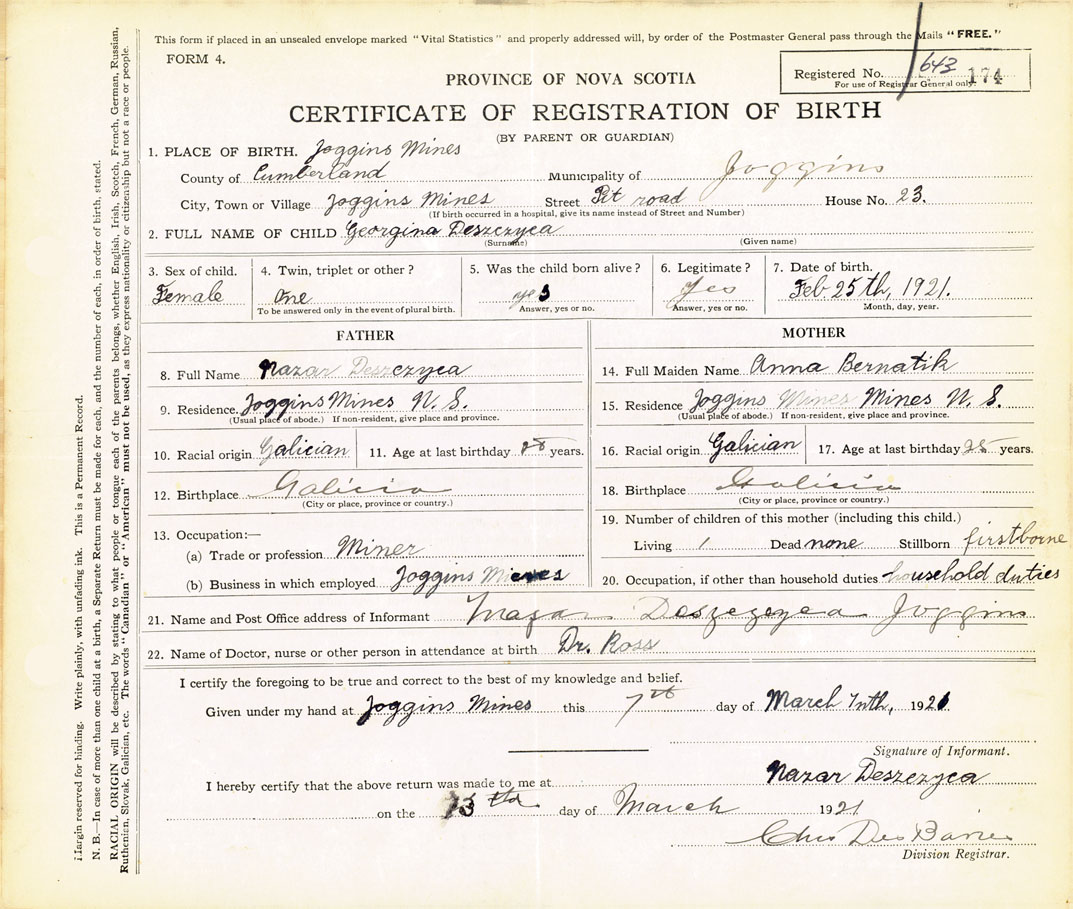 This form if placed in an unsealed envelope marked "Vital Statistics" and properly addressed will, by order of the Postmaster General pass through the Mails "FREE."
FORM 4.
Registered No. 643 174
For use of Registrar General only.
PROVINCE OF NOVA SCOTIA
CERTIFICATE OF REGISTRATION OF BIRTH
(BY PARENT OR GUARDIAN)
1. PLACE OF BIRTH. Joggins Mines
County of Cumberland Municipality of Joggins
City, Town or Village Joggins Mines Street Pit road House No. 23.
(If birth occurred in a hospital, give its name instead of Street and Number)
2. FULL NAME OF CHILD Georgina Deszczyca
(Surname) (Given name)
3. Sex of child. 4. Twin, triplet or other? 5. Was the child born alive? 6. Legitimate? 7. Date of birth.
Female One yes Yes Feb. 25th, 1921.
To be answered only in the event of plural birth. Answer, yes or no. Answer, yes or no. Month, day, year.
FATHER
8. Full Name Nazar Deszczyca
9. Residence. Joggins Mines N. S.
(Usual place of abode.) If non-resident, give place and province.
10. Racial origin Galician 11. Age at last birthday 28 years.
12. Birthplace Galicia
(City or place, province or country.)
13. Occupation:—
(a) Trade or profession Miner
(b) Business in which employed Joggins Mines
MOTHER
14. Full Maiden Name Anna Bernatik
15. Residence Joggins Mines Mines N. S.
(Usual place of abode.) If non-resident, give place and province.
16. Racial origin Galician 17. Age at last birthday 25 years.
18. Birthplace Galicia
(City or place, province or country.)
19. Number of children of this mother (including this child.)
Living 1 Dead none Stillborn firstborne
20. Occupation, if other than household duties household duties
21. Name and Post Office address of Informant Nazar Deszczyca Joggins
22. Name of Doctor, nurse or other person in attendance at birth Dr. Ross
I certify the foregoing to be true and correct to the best of my knowledge and belief.
Given under my hand at Joggins Mines this 7th day of March 7nth, 1921.
Signature of Informant.
Nazar Deszczyca
I hereby certify that the above return was made to me at
on the 13 day of March 1921
Division Registrar.
Margin reserved for binding. Write plainly, with unfading ink. This is a Permanent Record.
N. B.—In case of more than one child at a birth, a Separate Return must be made for each, and the number of each, in order of birth, stated.
RACIAL ORIGIN will be described by stating to what people or tongue each of the parents belongs, whether English, Irish, Scotch, French, German, Russian,
Ruthenian, Slovak, Galician, etc. The words "Canadian" or "American" must not be used, as they express nationality or citizenship but not a race or people.